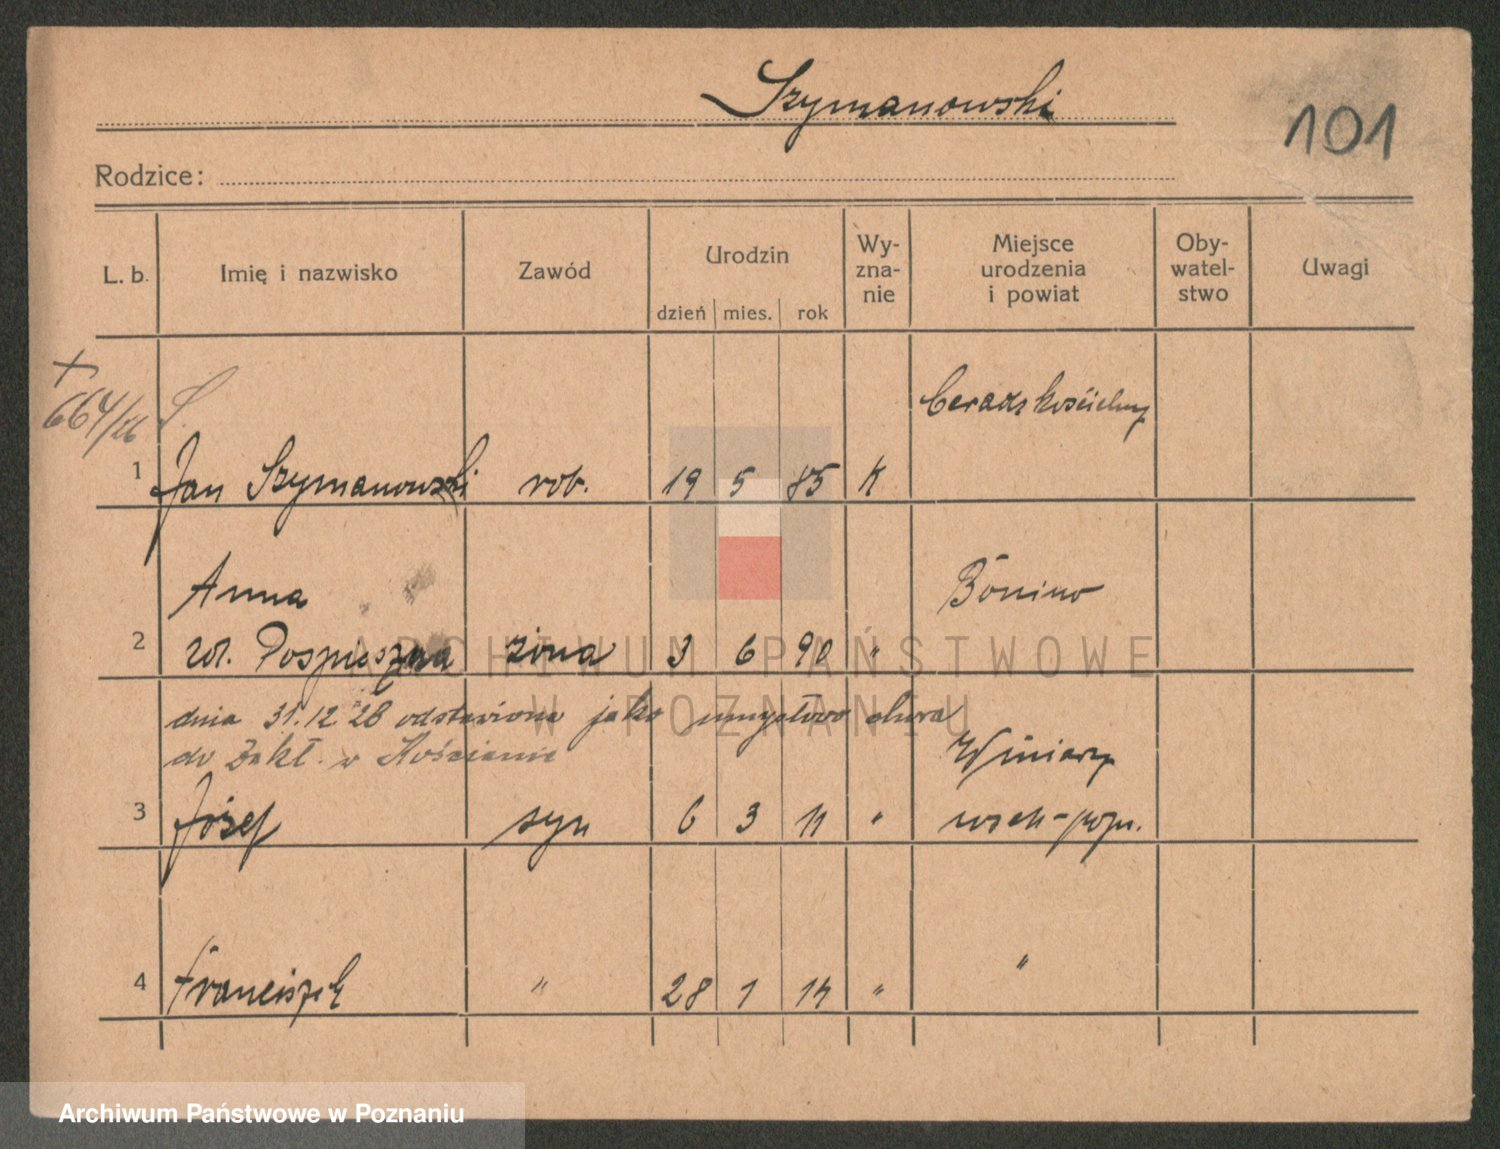 Szymanowski
101
Rodzice:
L. b.
Imię i nazwisko
Zawód
Urodzin
dzień mies. rok
Wy-
zna-
nie
Miejsce
urodzenia
i powiat
Oby-
watel-
stwo
Uwagi
+
664/26 S.
Ceradz kościelny
1 Jan Szymanowski rob. 19 5 85 K
Anna Bönino
2 żona 3 6 90 "
ur. Pospieszna
dnia 31.12 28 odstawiona jako umysłowo chora
do Zakł. w Kościanie
Winiary
3 Józef syn 6 3 11 "
4 Franciszek " 28 1 14 " "
ARCHIWUM PAŃSTWOWE
W POZNANIU
Archiwum Państwowe w Poznaniu